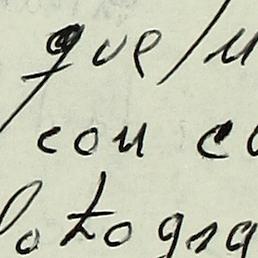 que/u
con co
lotogra